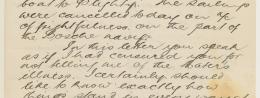 boat to Blighty. The sailings
were cancelled to day on %
of frightfulness on the part of
the Bosche navy.
In this letter you speak
as if I had censured you for
not telling me of the
illness. I certainly should
like to know exactly how
things stand